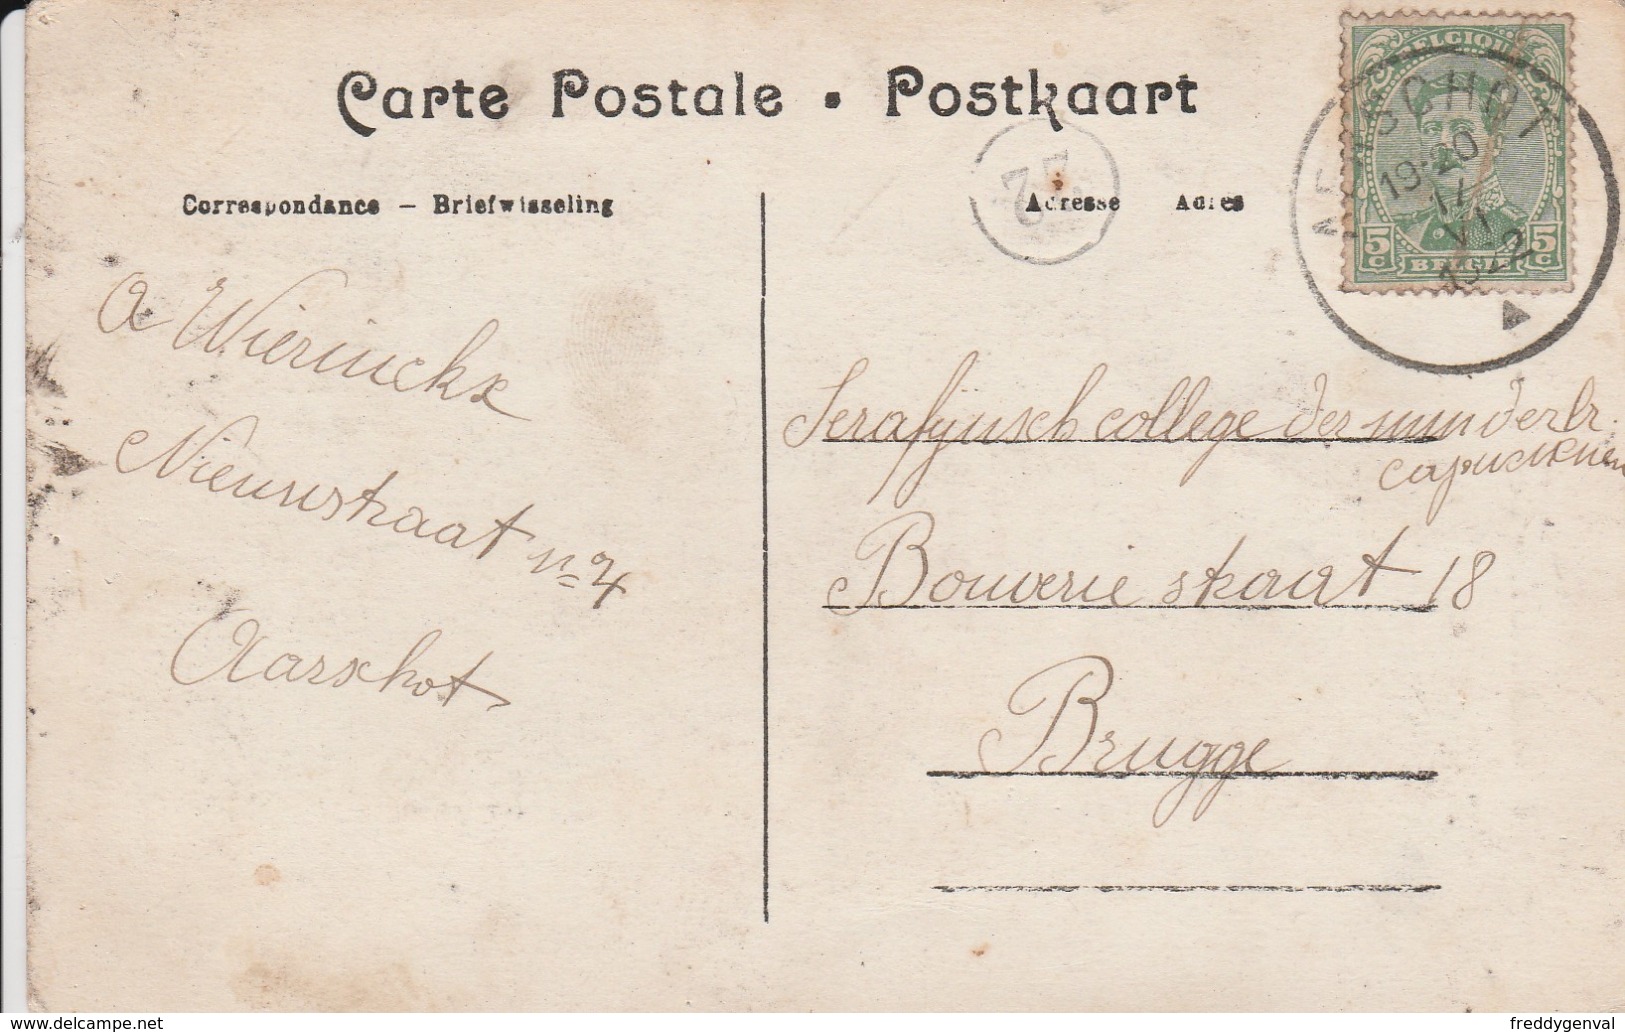 Carte Postale • Postkaart
Correspondance — Briefwisseling
Adresse Adres
BELGIQUE
5c 5c
BELGIE
AERSCHOT
19-20
17
VI
1922
22
A Wierinckx
Nieuwstraat nº 4
Aarschot
Serafijnsch college der minderbr.
capucienen
Bouverie straat 18
Brugge
www.delcampe.net
freddygenval